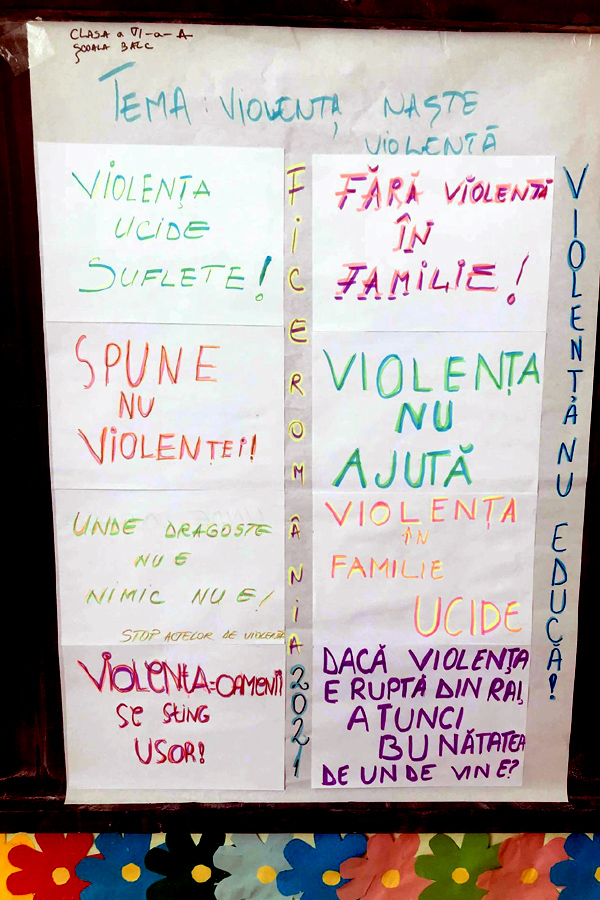 CLASA a VI-a-A
ȘCOALA BALC
TEMA: VIOLENȚA NAȘTE
VIOLENȚĂ
VIOLENȚA
UCIDE
SUFLETE!
SPUNE
NU
VIOLENȚEI!
UNDE DRAGOSTE
NU E
NIMIC NU E!
STOP ACTELOR DE VIOLENȚĂ
VIOLENȚA=OAMENII
SE STING
USOR!
FICE ROMÂNIA 2021
FĂRĂ VIOLENȚĂ
ÎN
FAMILIE!
VIOLENȚA
NU
AJUTĂ
VIOLENȚA
ÎN
FAMILIE
UCIDE
DACĂ VIOLENȚA
E RUPTĂ DIN RAI,
ATUNCI
BUNĂTATEA
DE UNDE VINE?
VIOLENȚA NU EDUCĂ!